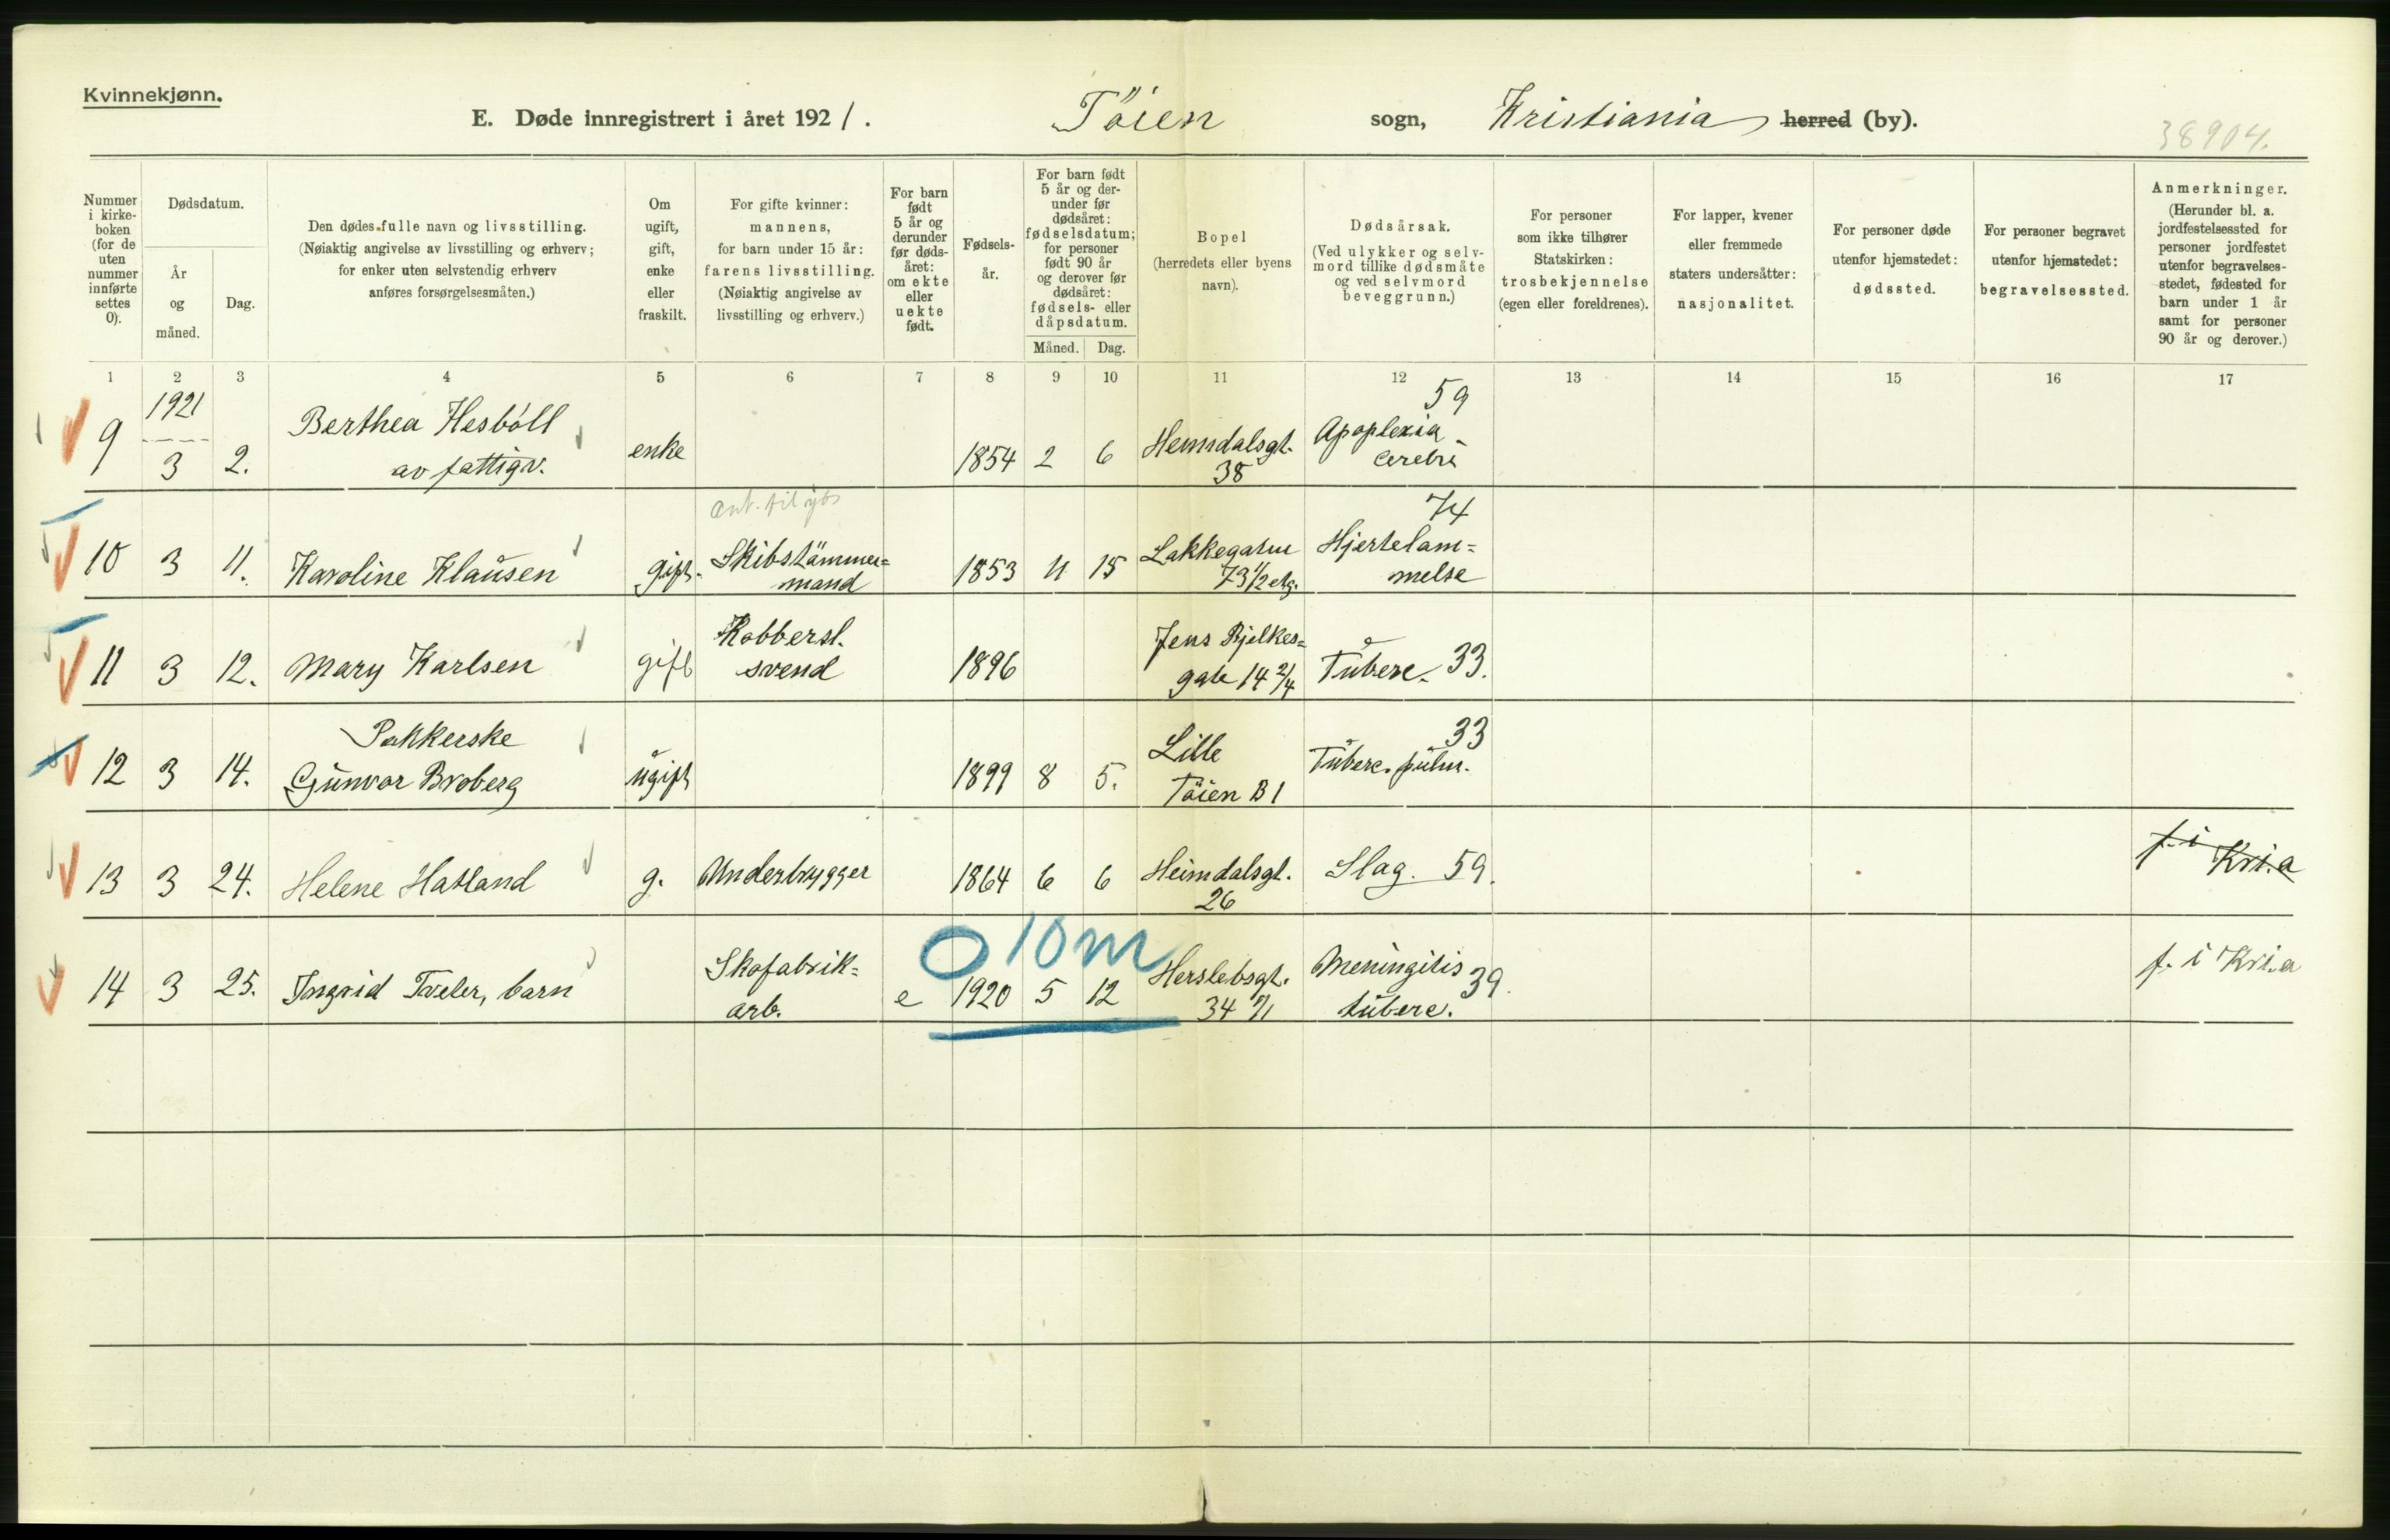 Kvinnekjønn.
E. Døde innregistrert i året 1921. Töien sogn, Kristiania herred (by).
38904.
Nummer i kirke-boken (for de uten nummer innførte settes 0).
Dødsdatum.
År og måned.
Dag.
Den dødes fulle navn og livsstilling.
(Nøiaktig angivelse av livsstilling og erhverv;
for enker uten selvstendig erhverv
anføres forsørgelsesmåten.)
Om ugift, gift, enke eller fraskilt.
For gifte kvinner:
mannens,
for barn under 15 år:
farens livsstilling.
(Nøiaktig angivelse av
livsstilling og erhverv.)
For barn født 5 år og derunder før døds-året: om ekte eller uekte født.
Fødsels-år.
For barn født 5 år og der-under før dødsåret: fødselsdatum; for personer født 90 år og derover før dødsåret: fødsels- eller dåpsdatum.
Måned. Dag.
Bopel
(herredets eller byens
navn).
Dødsårsak.
(Ved ulykker og selv-
mord tillike dødsmåte
og ved selvmord
beveggrunn.)
For personer
som ikke tilhører
Statskirken:
trosbekjennelse
(egen eller foreldrenes).
For lapper, kvener
eller fremmede
staters undersåtter:
nasjonalitet.
For personer døde
utenfor hjemstedet:
dødssted.
For personer begravet
utenfor hjemstedet:
begravelsessted.
Anmerkninger.
(Herunder bl. a.
jordfestelsessted for
personer jordfestet
utenfor begravelses-
stedet, fødested for
barn under 1 år
samt for personer
90 år og derover.)
1 2 3 4 5 6 7 8 9 10 11 12 13 14 15 16 17
1921 59
9 3 2. Berthea Hesböll av fattigv. enke 1854 2 6 Heimdalsgt. 38 Apoplexia cerebri
74
10 3 11. Karoline Klausen gift. Skibstämmer=mand 1853 11 15 Lakkegaten 73 1/2 etg. Hjertelam=melse
11 3 12. Mary Karlsen gift Kobbersl. svend 1896 Jens Bjelkes=gate 14 2/4 Tuberc. 33.
33
12 3 14. Pakkerske Gunvor Broberg ugift 1899 8 5. Lille Töien B 1 Tuberc. pulm.
13 3 24. Helene Hatland g. Underbrygger 1864 6 6 Heimdalsgt. 26 Slag. 59. f. i Kri.a
0 10 m
14 3 25. Ingrid Tveler, barn Skofabrik=arb. e 1920 5 12 Herslebsgt. 34 Meningitis tuberc. 39. f. i Kri.a